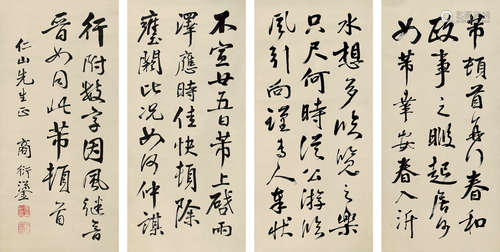 芾頓首春和
政事之暇起居何
如芾輩安春入沂
水想多臨覽之樂
只尺何時從公游臨
風引向謹專人奉狀
不宣廿五日芾上啓雨
澤應時佳快頓除
壅閼此況如何仲謀
行附數字因風繼音
晉如同此芾頓首
仁山先生正 商衍鎏